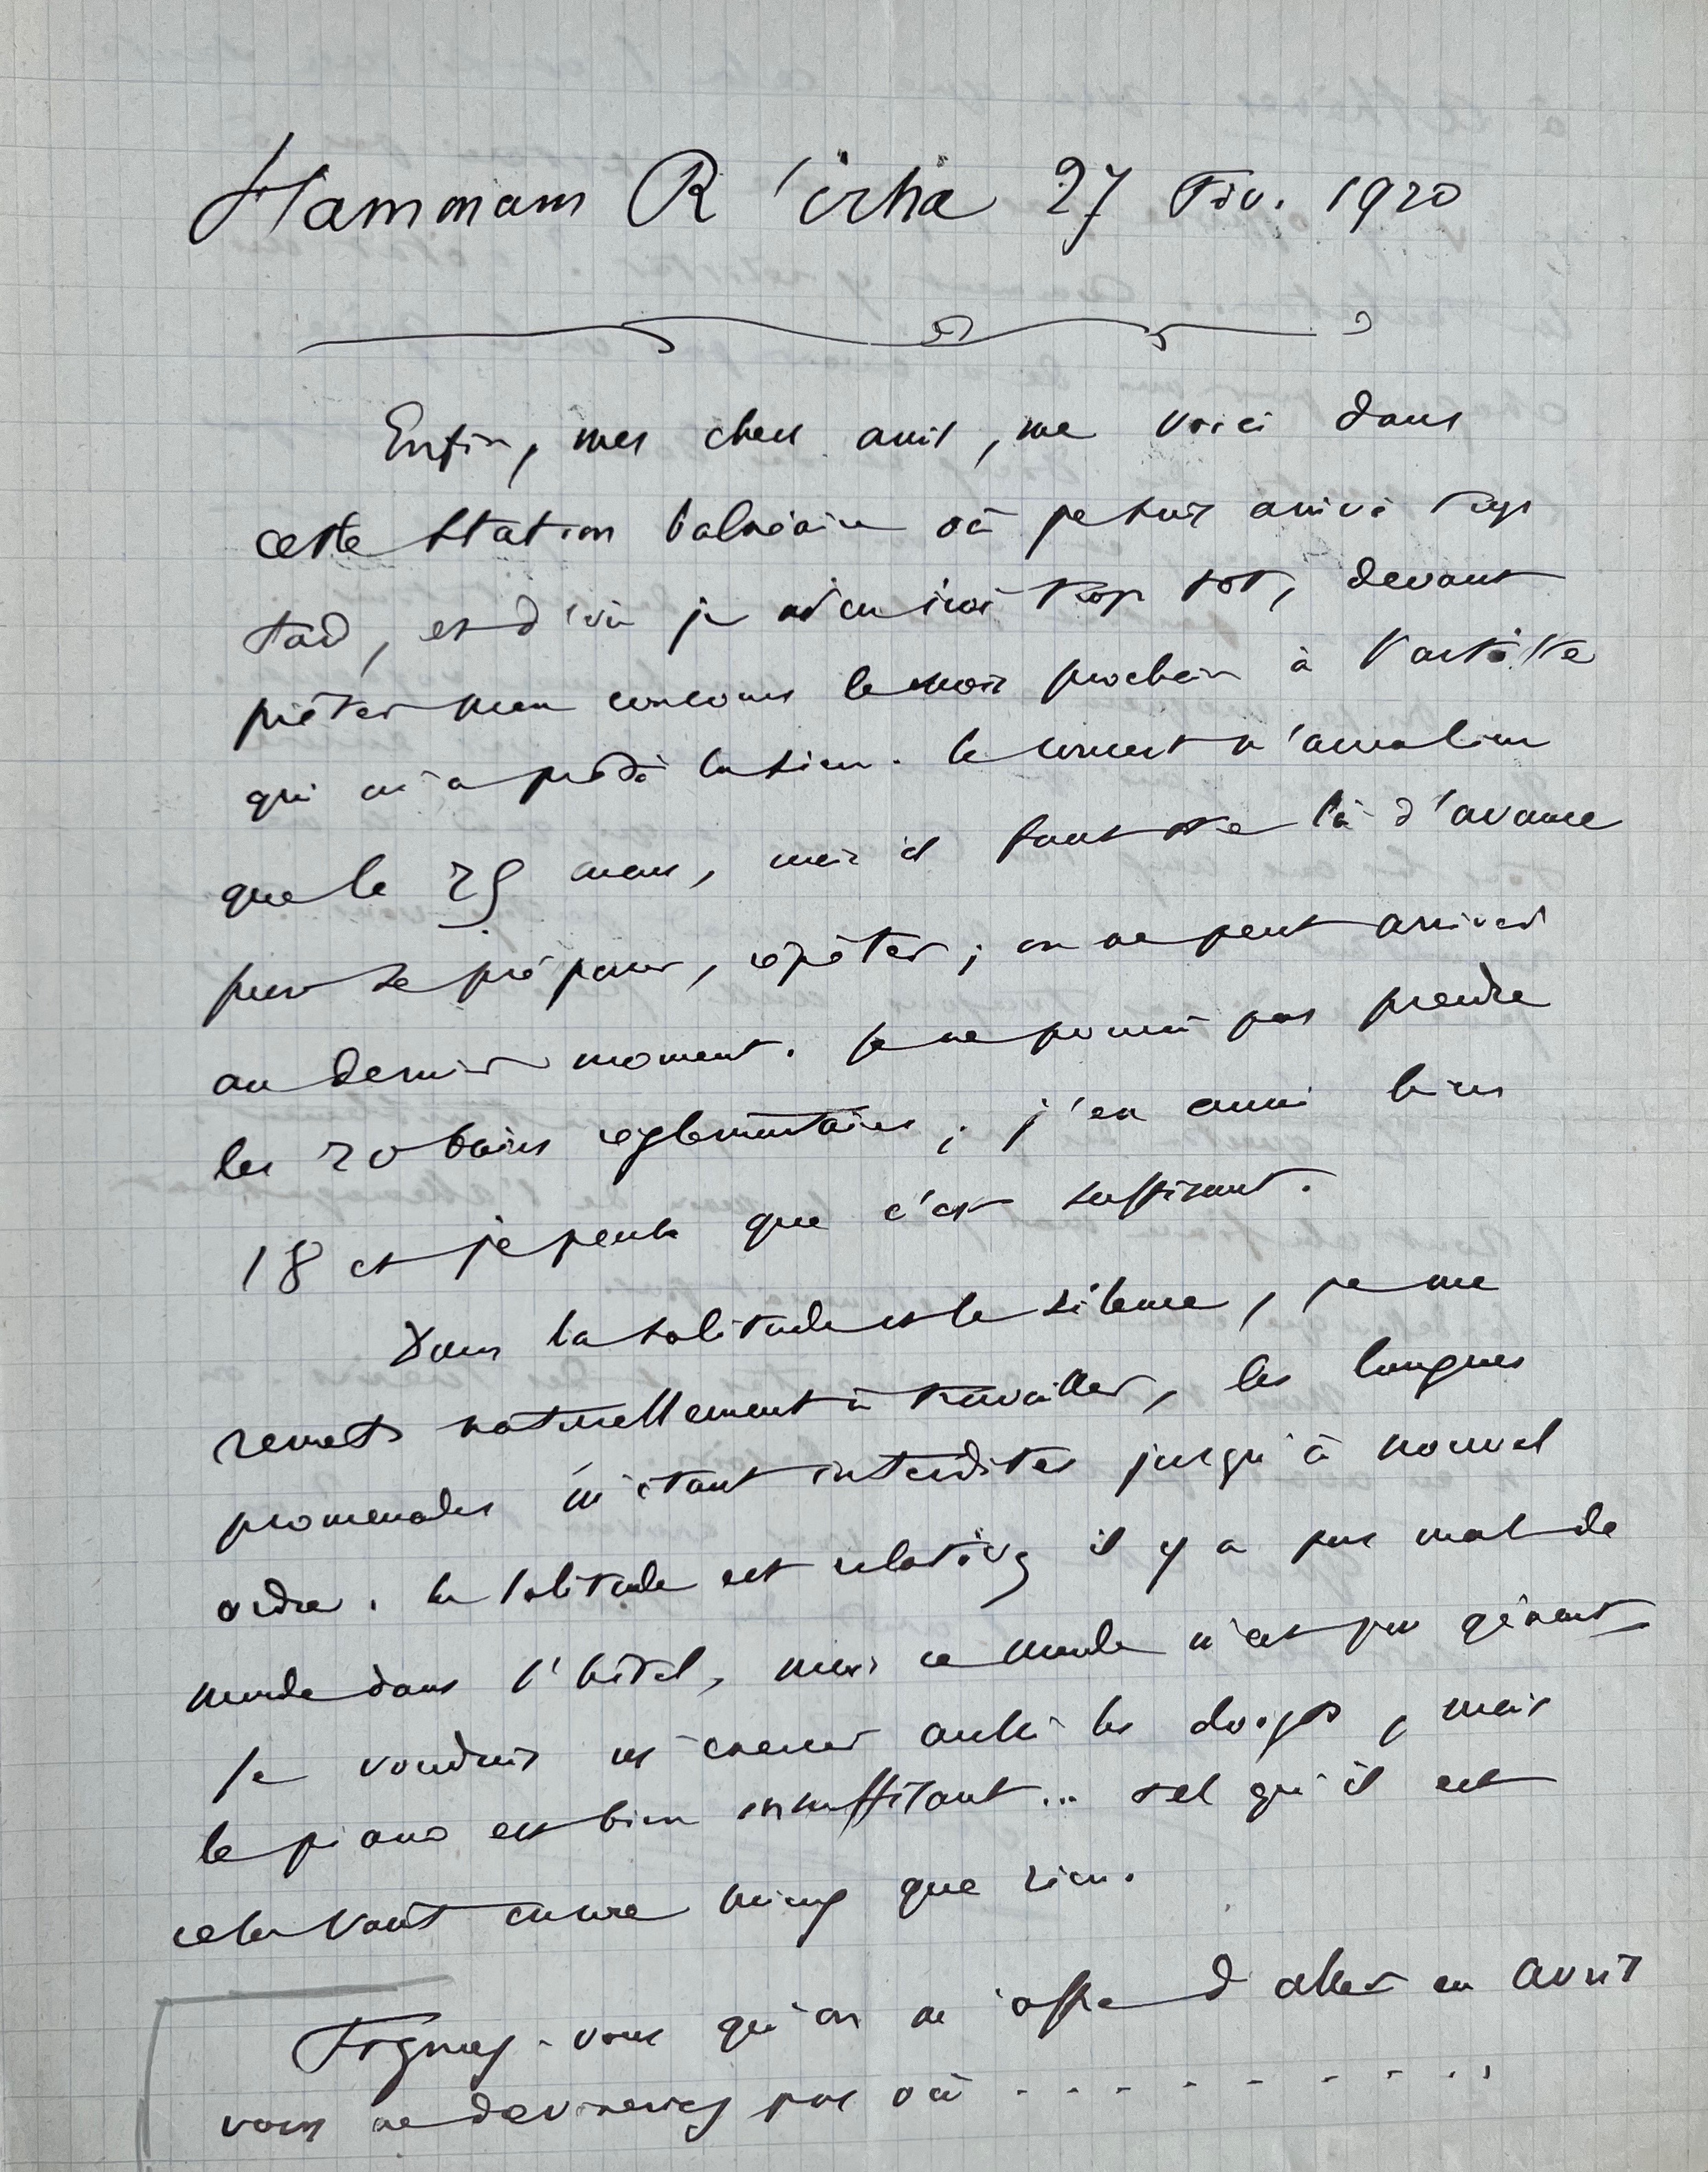 Hammam R'irha 27 Fév. 1920
Enfin, mes chers amis, me voici dans
cette station balnéaire où je suis arrivé trop
tard, et d'où je m'en irai trop tôt, devant
prêter mon concours le mois prochain à l'artiste
qui m'a prêté le sien. Le concert n'aura lieu
que le 25 mars, mais il faut être là d'avance
pour se préparer, répéter ; on ne peut arriver
au dernier moment. Je ne pourrai pas prendre
les 20 bains réglementaires ; j'en aurai bien
18 et je pense que c'est suffisant.
Dans la solitude et le silence, je me
remets naturellement à travailler, les longues
promenades m'étant interdites jusqu'à nouvel
ordre. La solitude est relative, il y a pas mal de
monde dans l'hôtel, mais ce monde n'est pas gênant
Je voudrais m'exercer aussi les doigts, mais
le piano est bien insuffisant... tel qu'il est
cela vaut encore mieux que rien.
Figurez-vous qu'on m'offre d'aller en Avril
vous ne devineriez pas où . . . . . . . . . .